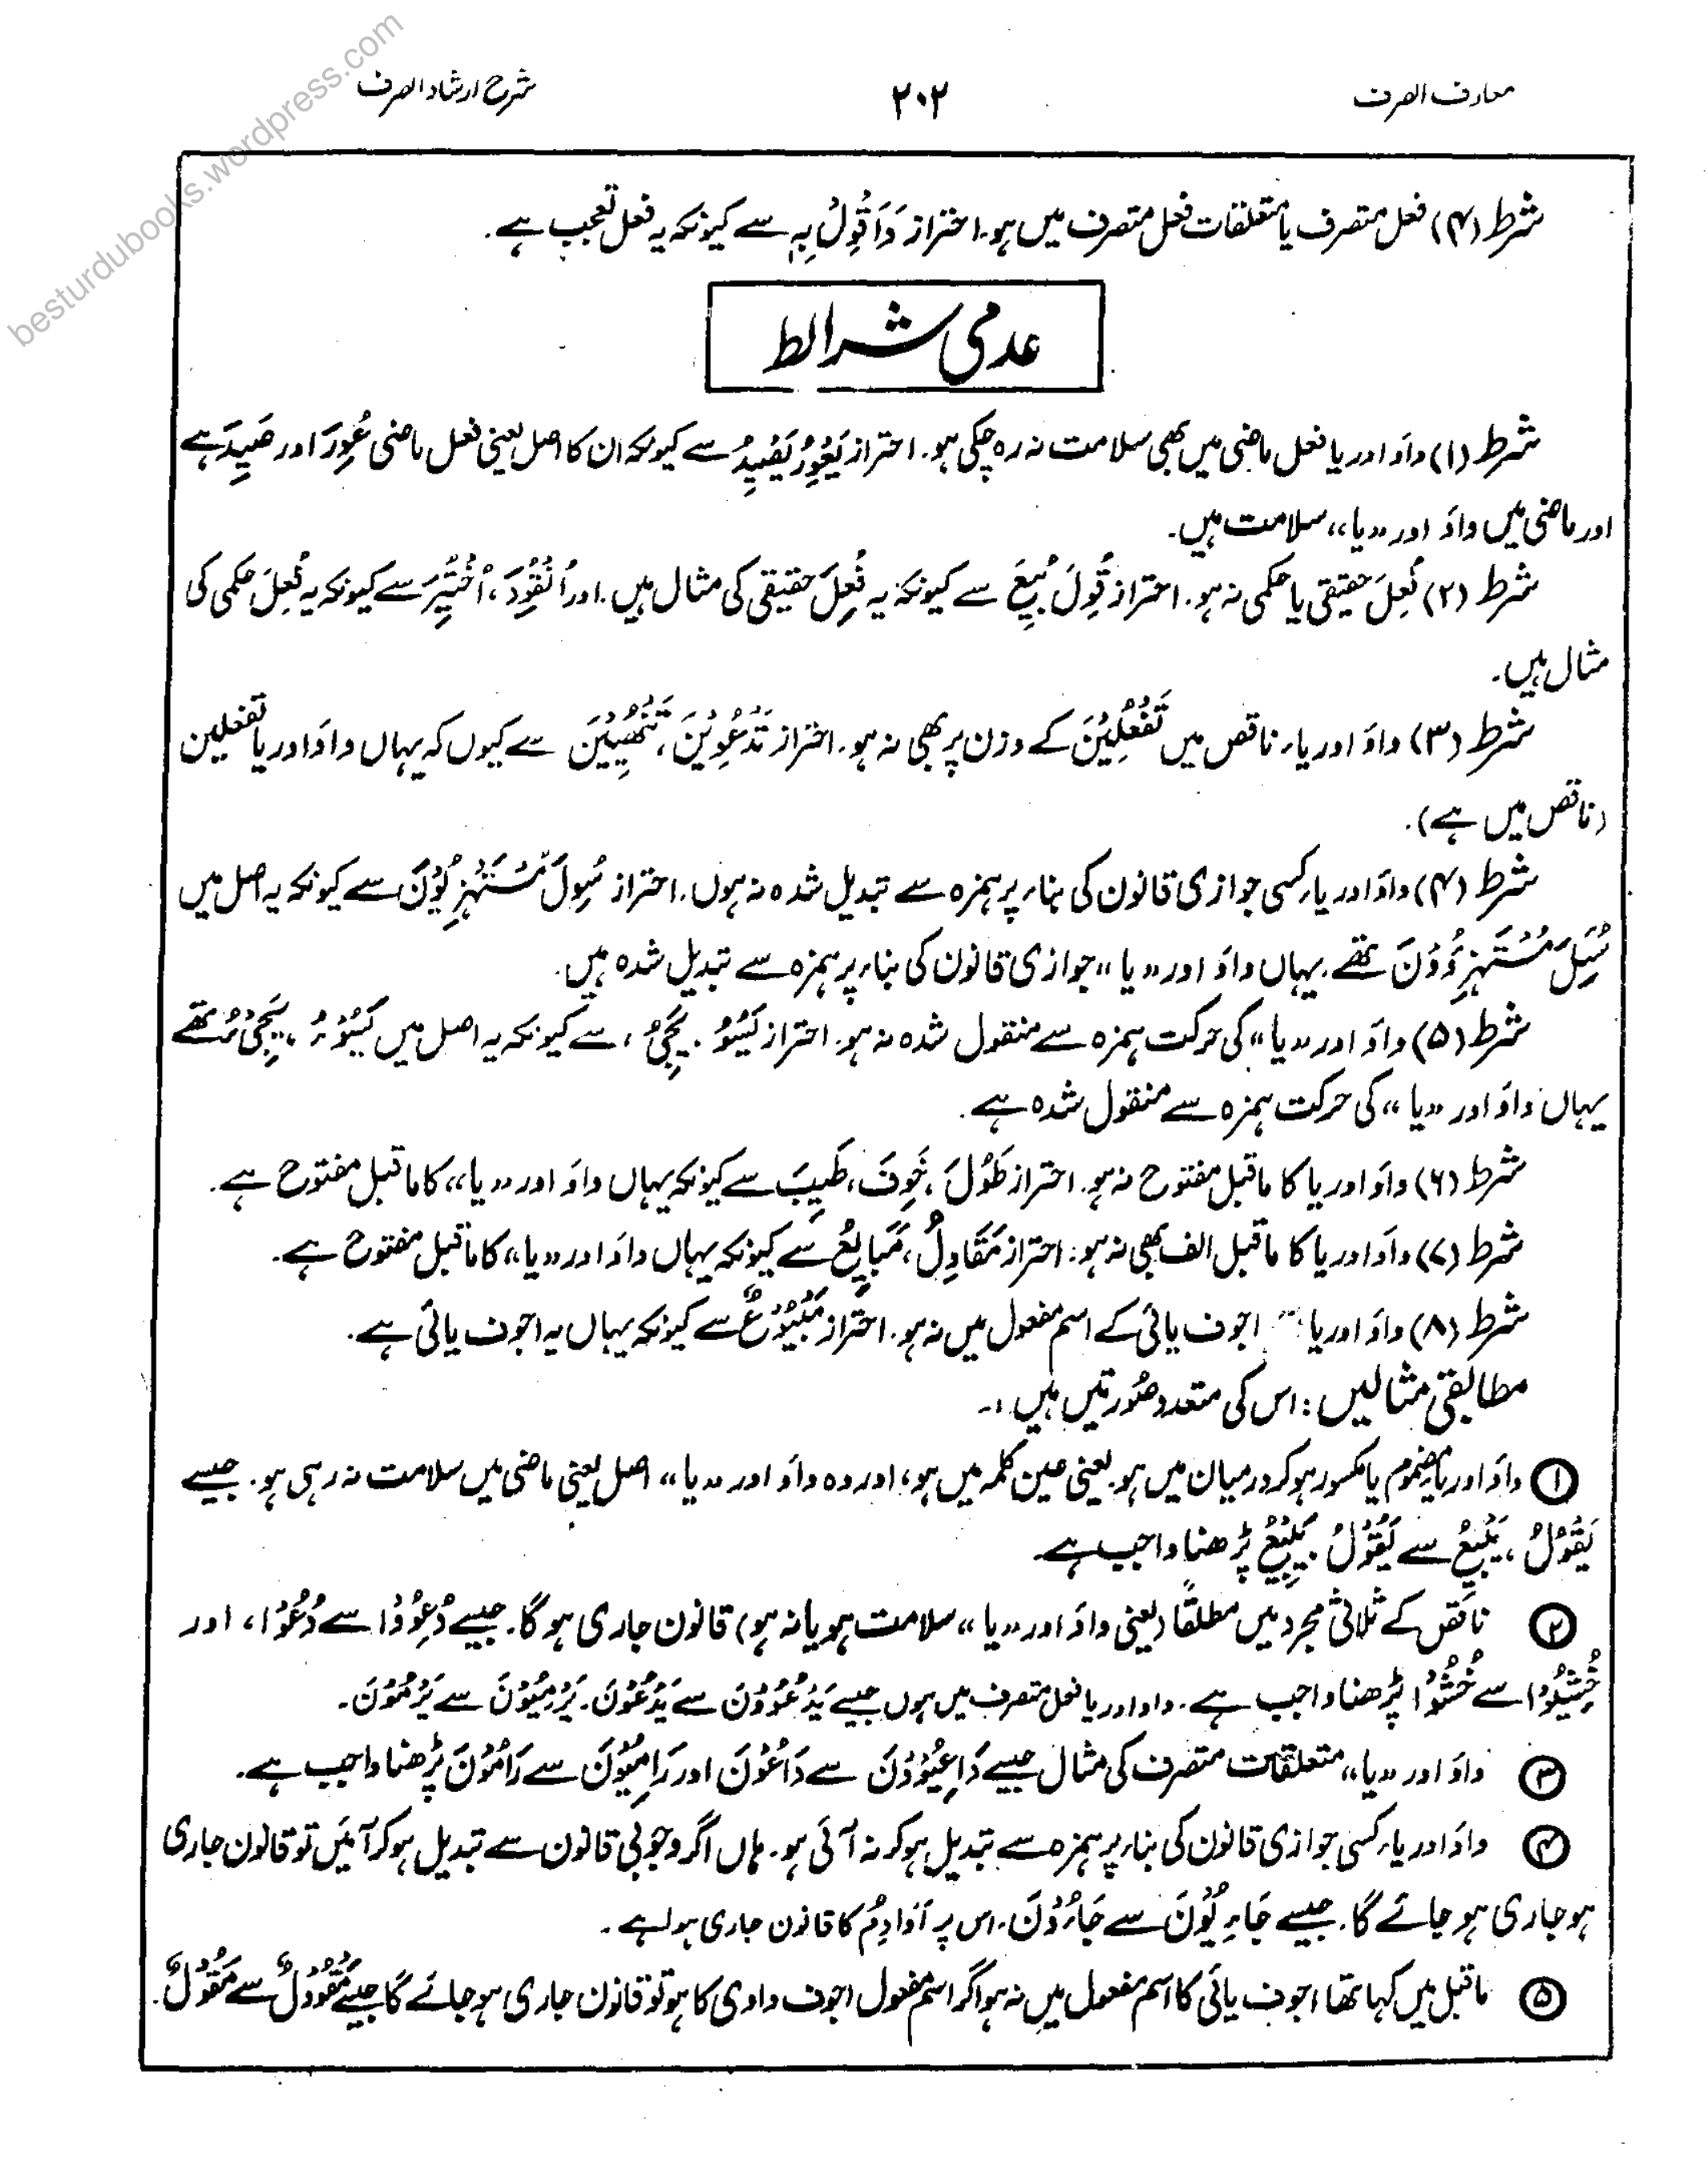 معارف الصرف
۲۰۲
شرح ارشاد الصرف
besturdubooks.wordpress.com
شرط (۴) فعل متصرف یا متعلقات فعل متصرف میں ہو۔ احتراز وَاَقْوِلْ بِہٖ سے کیونکہ یہ فعل تعجب ہے۔
عدمی شرائط
شرط (۱) واؤ اور یا فعل ماضی میں بھی سلامت نہ رہ چکی ہو۔ احتراز یَعْوِرُ یَصْیِدُ سے کیونکہ ان کا اصل یعنی فعل ماضی عَوِرَ اور صَیِدَ ہے
اور ماضی میں واؤ اور ”یا“ سلامت ہیں۔
شرط (۲) فُعِلَ حقیقی یا حکمی نہ ہو۔ احتراز قُوِلَ بُیِعَ سے کیونکہ یہ فُعِلَ حقیقی کی مثال ہیں۔ اور اُنْقُوِدَ، اُخْتُیِرَ سے کیونکہ یہ فُعِلَ حکمی کی
مثال ہیں۔
شرط (۳) واؤ اور یاء ناقص میں تَفْعُلِیْنَ کے وزن پر بھی نہ ہو۔ احتراز تَدْعُوِیْنَ، تَنْهُیِیْنَ سے کیوں کہ یہاں واؤ اور یا تفعلین
(ناقص میں ہے)۔
شرط (۴) واؤ اور یاء کسی جوازی قانون کی بناء پر ہمزہ سے تبدیل شدہ نہ ہوں۔ احتراز سُوِلَ مُسْتَهْزِیُوْنَ سے کیونکہ یہ اصل میں
سُئِلَ مُسْتَهْزِءُوْنَ تھے۔ یہاں واؤ اور ”یا“ جوازی قانون کی بناء پر ہمزہ سے تبدیل شدہ ہیں۔
شرط (۵) واؤ اور ”یا“ کی حرکت ہمزہ سے منقول شدہ نہ ہو۔ احتراز یَسُوُ۔ یَجِیُ، سے کیونکہ یہ اصل میں یَسُوْءُ، یَجِیْءُ تھے
یہاں واؤ اور ”یا“ کی حرکت ہمزہ سے منقول شدہ ہے۔
شرط (۶) واؤ اور یا کا ماقبل مفتوح نہ ہو۔ احتراز طَوُلَ، خَوِفَ، طَیِبَ سے کیونکہ یہاں واؤ اور ”یا“ کا ماقبل مفتوح ہے۔
شرط (۷) واؤ اور یا کا ماقبل الف بھی نہ ہو: احتراز مَقَاوِلُ، مَبَایِعُ سے کیونکہ یہاں واؤ اور ”یا“ کا ماقبل مفتوح ہے۔
شرط (۸) واؤ اور یا اجوف یائی کے اسم مفعول میں نہ ہو۔ احتراز مَبْیُوْعٌ سے کیونکہ یہاں یہ اجوف یائی ہے۔
مطابقتی مثالیں: اس کی متعدد صُورتیں ہیں:۔
① واؤ اور یا مضموم یا مکسور ہو کر درمیان میں ہو۔ یعنی عین کلمہ میں ہو، اور وہ واؤ اور ”یا“ اصل یعنی ماضی میں سلامت نہ رہی ہو۔ جیسے
یَقْوُلُ، یَبْیِعُ سے یَقُوْلُ یَبِیْعُ پڑھنا واجب ہے۔
② ناقص کے ثلاثی مجرد میں مطلقًا (یعنی واؤ اور ”یا“ سلامت ہو یا نہ ہو) قانون جاری ہو گا۔ جیسے دُعِوُوْا سے دُعُوْا، اور
خُشِیُوْا سے خُشُوْا پڑھنا واجب ہے۔ واؤ اور یا فعل متصرف میں ہوں جیسے یَدْعُوُوْنَ سے یَدْعُوْنَ۔ یَرْمِیُوْنَ سے یَرْمُوْنَ۔
③ واؤ اور ”یا“ متعلقات متصرف کی مثال جیسے دَاعِیُوْوْنَ سے دَاعُوْنَ اور رَامِیُوْنَ سے رَامُوْنَ پڑھنا واجب ہے۔
④ واؤ اور یاء کسی جوازی قانون کی بناء پر ہمزہ سے تبدیل ہو کر نہ آئی ہو۔ ہاں اگر وجوبی قانون سے تبدیل ہو کر آئیں تو قانون جاری
ہو جاری ہو جائے گا۔ جیسے جَاءِیُوْنَ سے جَاءُوْنَ۔ اس پر اَوَادِمُ کا قانون جاری ہوا ہے۔
⑤ ماقبل میں کہا تھا اجوف یائی کا اسم مفعول میں نہ ہو اگر اسم مفعول اجوف وادی کا ہو تو قانون جاری ہو جائے گا جیسے مَقْوُوْلٌ سے مَقُوْلٌ۔